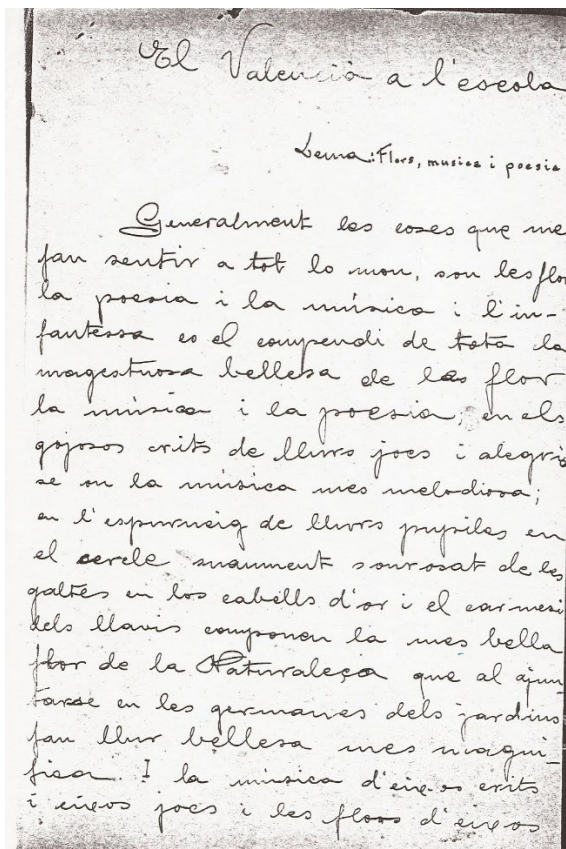 El Valencià a l'escola
Lema: Flors, musica i poesia
Generalment les coses que me
fan sentir a tot lo mon, son les flor
la poesia i la música i l'in-
fantessa es el compendi de tota la
magestuosa bellesa de las flor
la música i la poesia, en els
gojosos crits de llurs jocs i alegri
se ou la música mes melodiosa;
en l'espurneig de llurs pupiles en
el cercle suaument sonrosat de les
galtes en los cabells d'or i el carmesi
dels llavis componen la mes bella
flor de la Naturaleça que al ajun-
tarse en les germanes dels jardins
fan llur bellesa mes magni-
fica. I la música d'eixos crits
i eixos jocs i les flors d'eixos